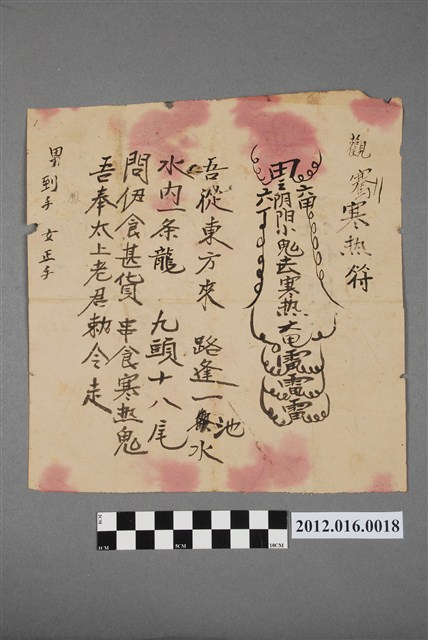 觀寒热符
六甲
六丁
陰陽小鬼去寒热
雷
雷
雷
吾從東方來 路逢一池水
水內一条龍 九頭十八尾
問伊食甚貨 串食寒热鬼
吾奉太上老君勅令走
男到手 女正手
1CM
5CM
10CM
2012.016.0018